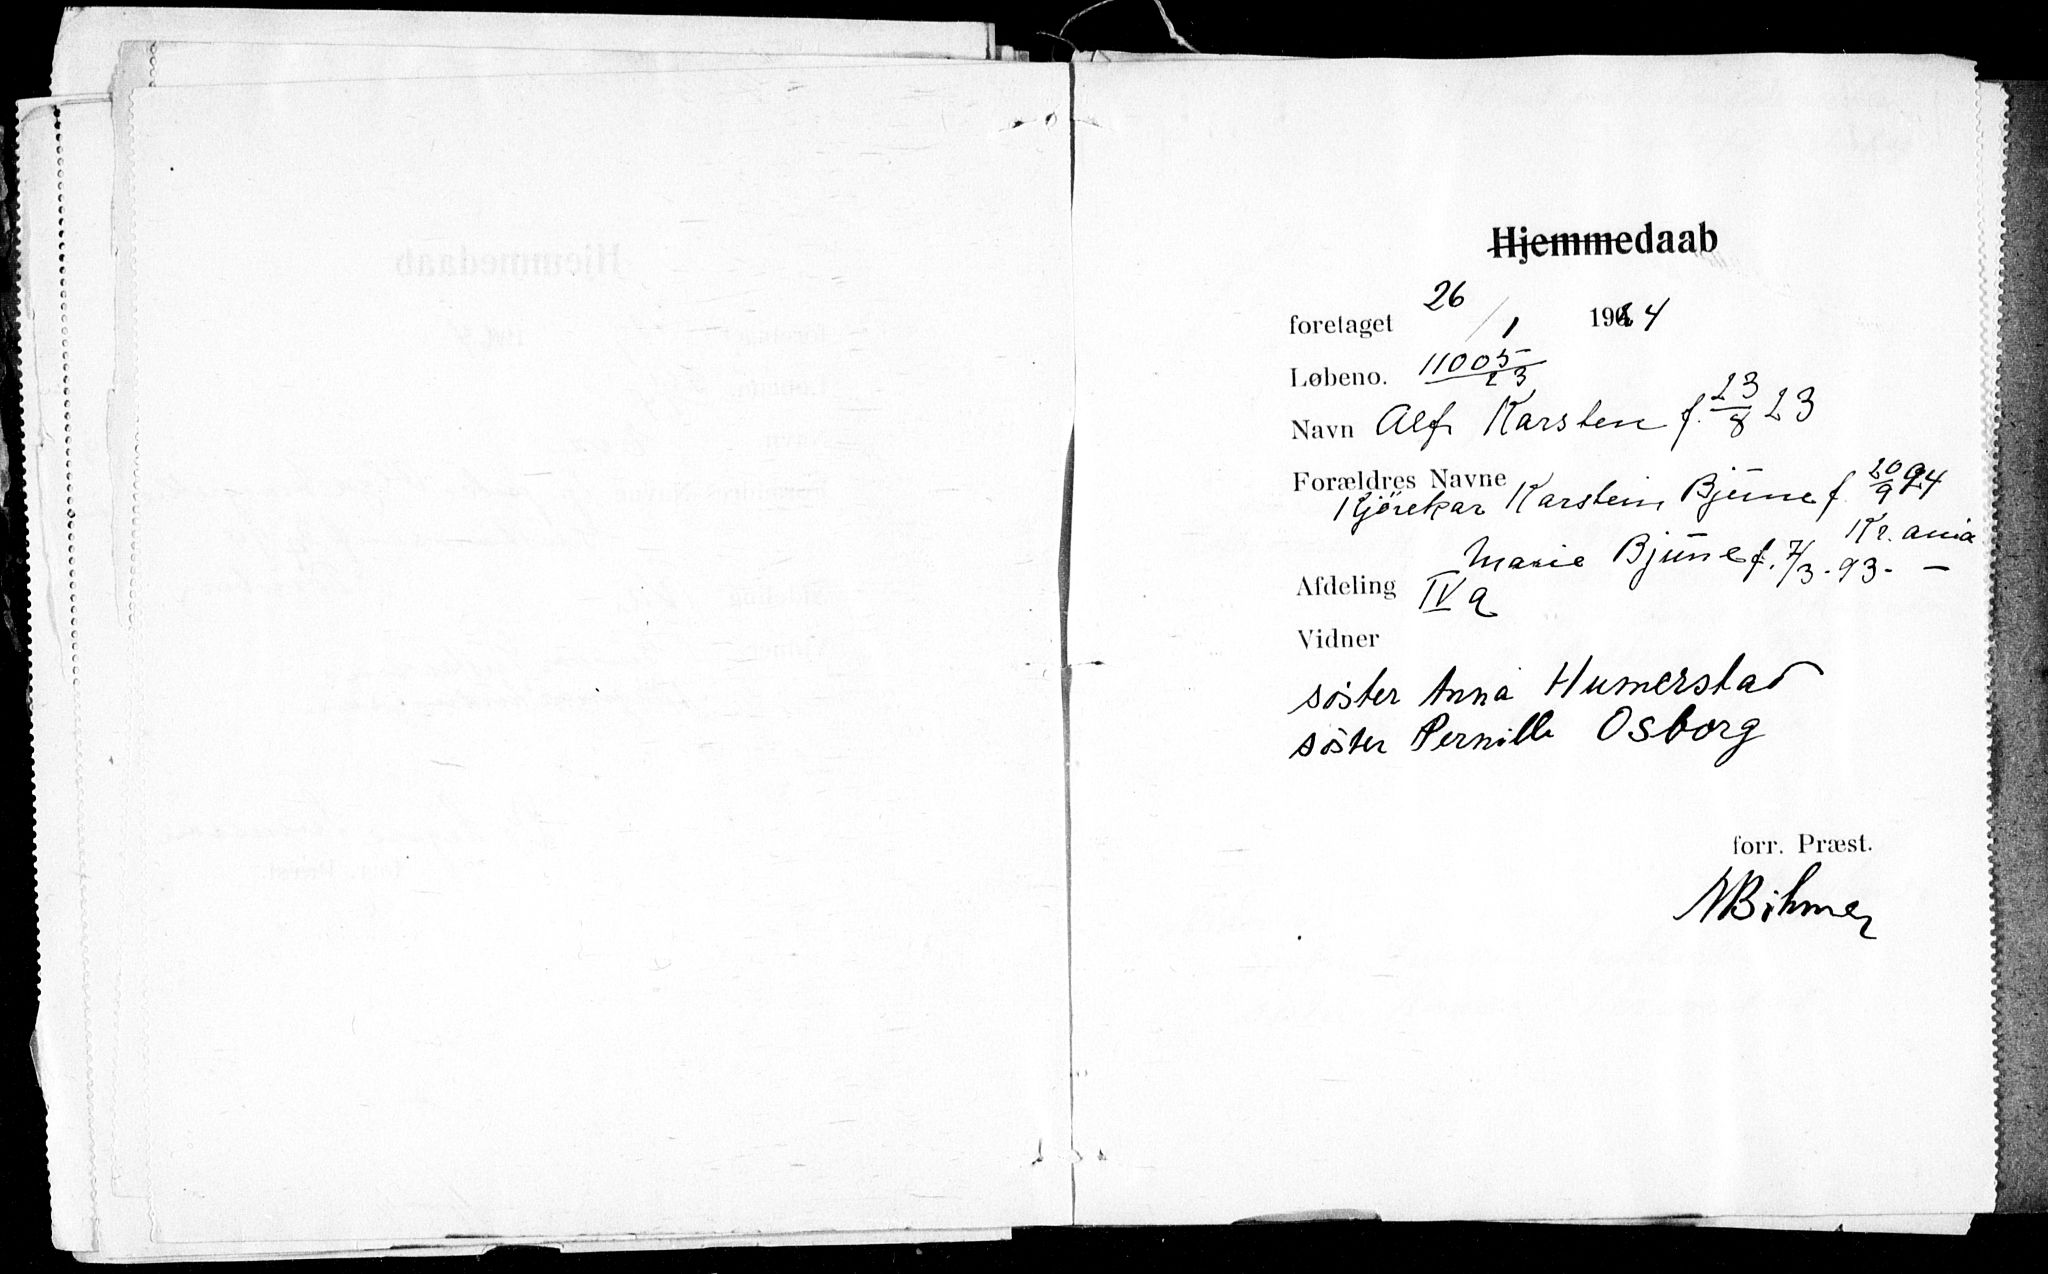 Hjemmedaab
foretaget 26/1 1924
Løbeno. 11005/23
Navn Alf Karsten f. 23/8 23
Forældres Navne
Kjørekar Karstein Bjune f. 20/9 94
Kr.ania
Marie Bjune f. 7/3 - 93 - —
Afdeling IV a
Vidner
søster Anna Humerstad
søster Pernille Osborg
forr. Præst.